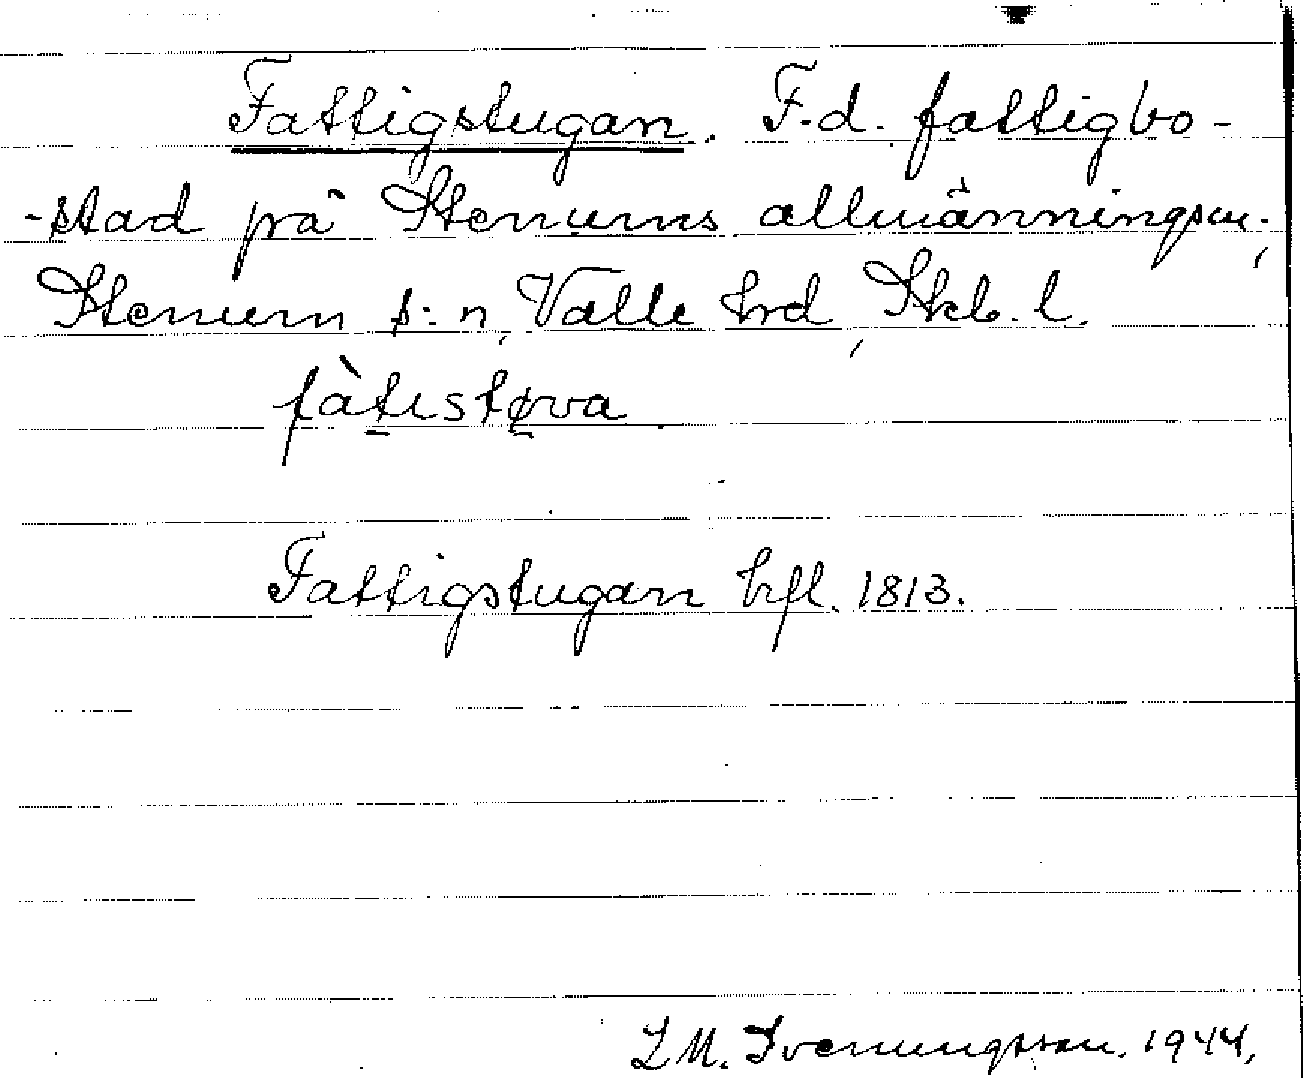 Fattigstugan. F.d. fattigbo-
-stad på Stenums allmänningsm.,
Stenum s:n, Valle hrd, Skb. l.
fàtɩstøva
Fattigstugan hfl. 1813.
L M. Svenungsson. 1944.